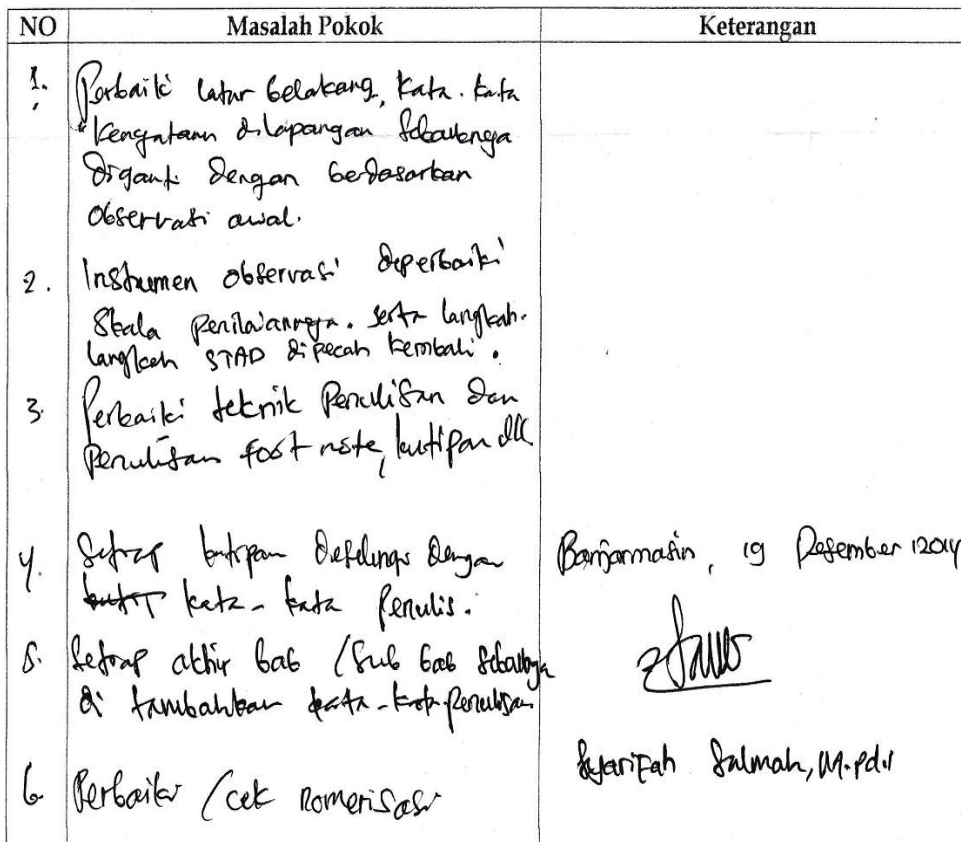 NO Masalah Pokok Keterangan
1. Perbaiki latar belakang, kata-kata
"kenyataan dilapangan sebaiknya
diganti dengan berdasarkan
observasi awal.
2. Instrumen observasi diperbaiki
skala penilaiannya. serta langkah-
langkah STAD di pecah kembali.
3. Perbaiki teknik Penulisan dan
Penulisan foot note, kutipan dll
4. Setiap kutipan diselingi dengan
kata-kata penulis.
5. Setiap akhir bab / sub bab sebaiknya
di tambahkan kata-kata penulisan
6. Perbaiki / cek nomerisasi
Banjarmasin, 19 Desember 2014
Syarifah Salmah, M.Pd.I